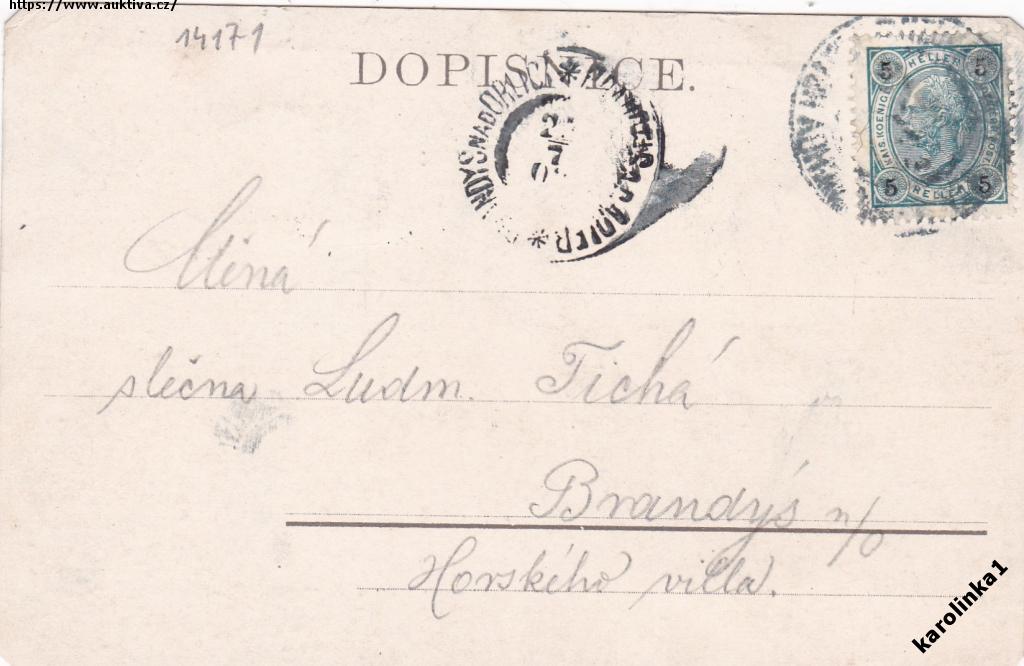 https://www.auktiva.cz/
14171
DOPISNICE.
BRANDÝS NAD ORLICÍ * ADLER *
5 HELLER 5
KAIS. KOENIG.
5 HELLER 5
Ctěná
slečna Ludm. Tichá
Brandýs n/O
Horského villa.
karolinka1